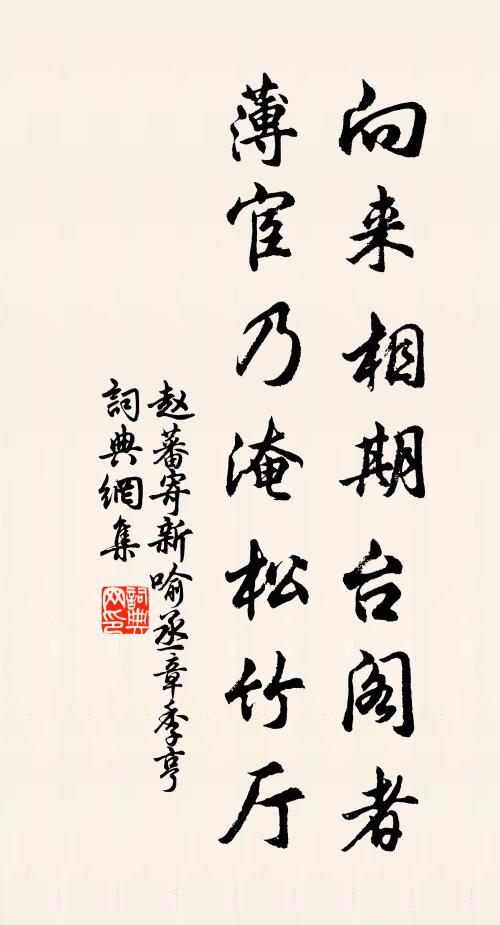 向来相期台阁者
薄宦乃淹松竹厅
赵蕃寄新喻丞章季亨
詞典網集
詞典网印